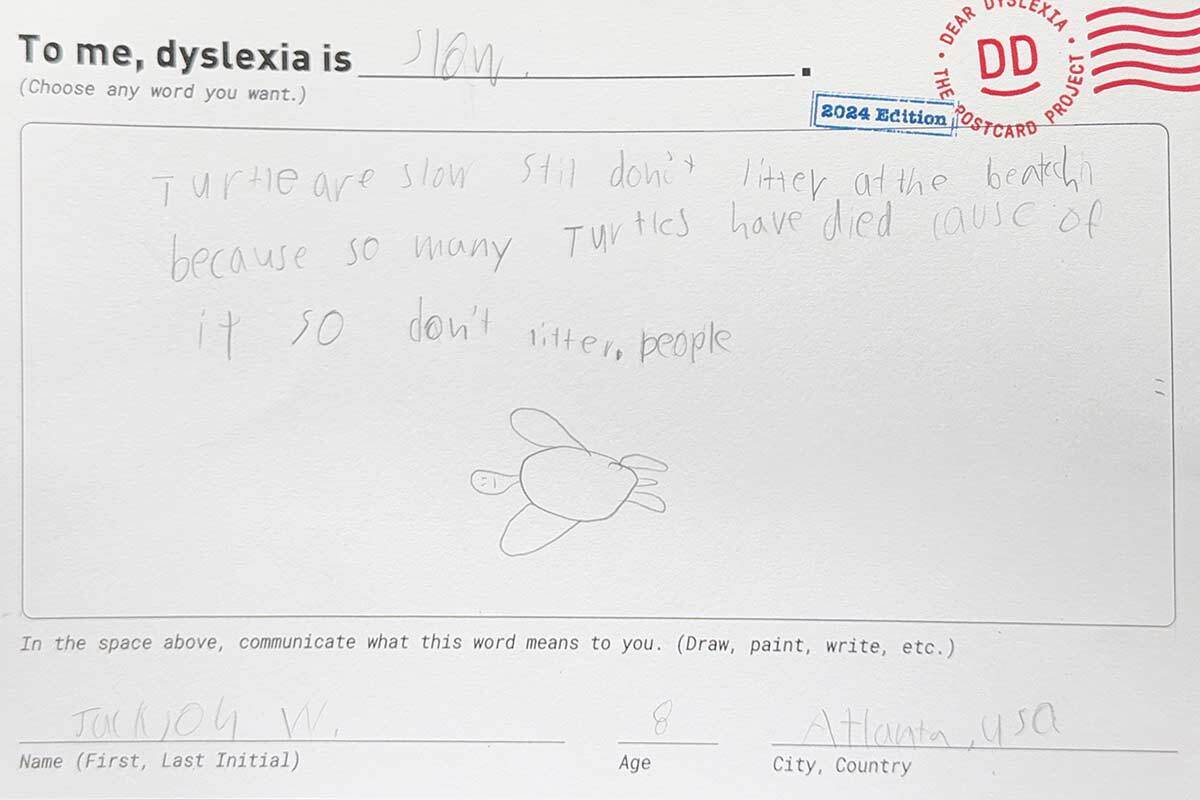 To me, dyslexia is slow.
(Choose any word you want.)
DEAR DYSLEXIA • THE POSTCARD PROJECT •
DD
2024 Edition
Turtle are slow still don't litter at the
because so many Turtles have died cause of
it so don't litter. people
In the space above, communicate what this word means to you. (Draw, paint, write, etc.)
W. 8 Atlanta, USA
Name (First, Last Initial) Age City, Country